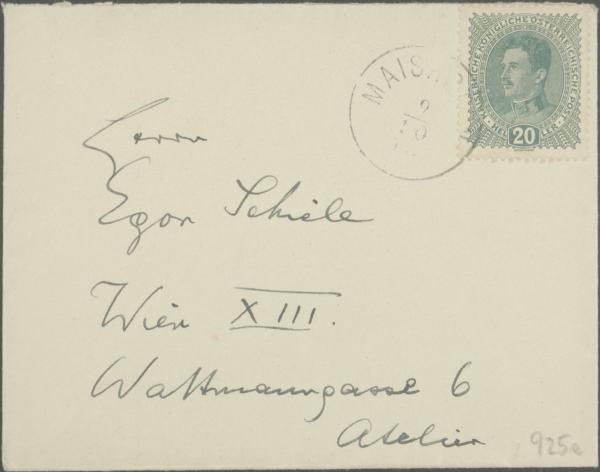 KAISERLICHE KÖNIGLICHE ÖSTERREICHISCHE POST
HELLER
20
Herrn
Egon Schiele
Wien XIII.
Wattmanngasse 6
Atelier
925e